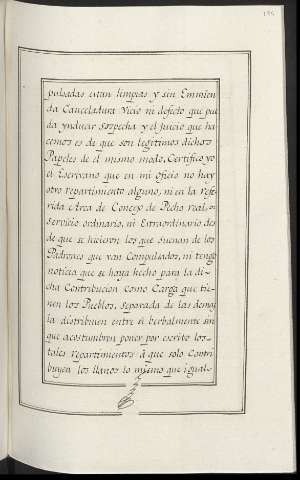 pulsadas estan limpias y sin Emmien
da Canceladura Vicio ni defecto que pu
da ynducir sospecha y el juicio que ha
cemos es de que son legitimos dichos
Papeles de el mismo modo, Certifico yo
el Escrivano que en mi oficio no hay
otro repartimiento alguno, ni en la refe
rida Arca de Concejo de Pecho real,
servicio ordinario, ni Extraordinario des
de que se hicieron los que suenan de los
Padrones que van Compulsados, ni tengo
noticia que se haya hecho para la di-
cha Contribucion Como Carga que tie-
nen los Pueblos, separada de las demas
la distribuien entre si berbalmente sin
que acostumbren poner por escrito los-
tales repartimientos à que solo Contri
buyen los llanos lo mismo que igual-